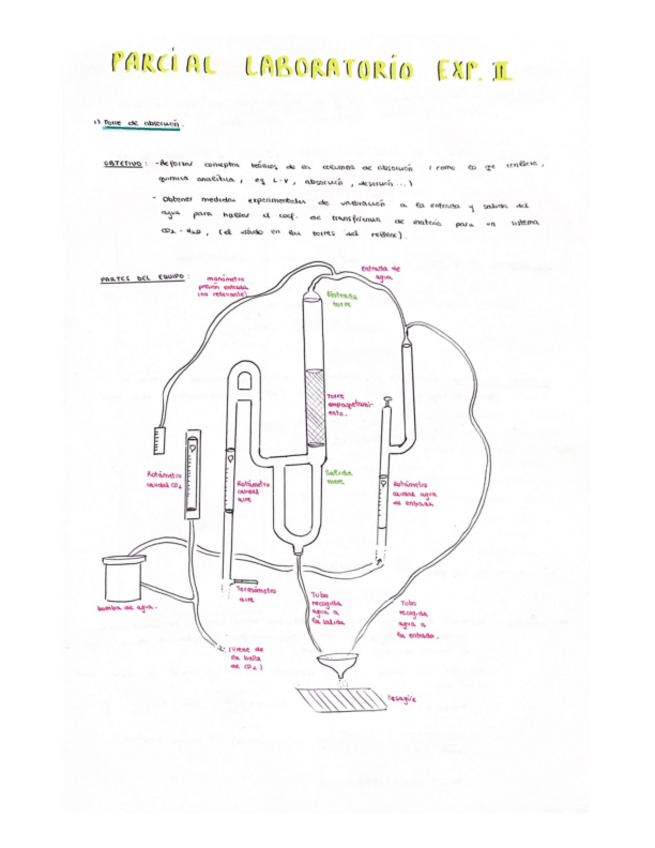 PARCIAL LABORATORIO EXP. II
1) Torre de absorción.
OBJETIVO: - Reforzar conceptos teóricos de la columna de absorción (como lo que conlleva,
química analítica, eq L-V, absorción, desorción...)
- Obtener medidas experimentales de valoración a la entrada y salida del
agua para hallar el coef. de transferencia de materia para un sistema
CO2-H2O, (el válido en las torres del relleno).
PARTES DEL EQUIPO:
manómetro
presión entrada
(no relevante)
Entrada de
agua
Entrada
torre
Torre
empaquetami-
ento.
Rotámetro
caudal CO2
Rotámetro
caudal
aire
Salida
torre
Rotámetro
caudal agua
de entrada
bomba de agua.
Termómetro
aire
Tubo
recogida
agua a
la salida
Tubo
recogida
agua a
la entrada.
(viene de
la bella
de CO2)
Desagüe